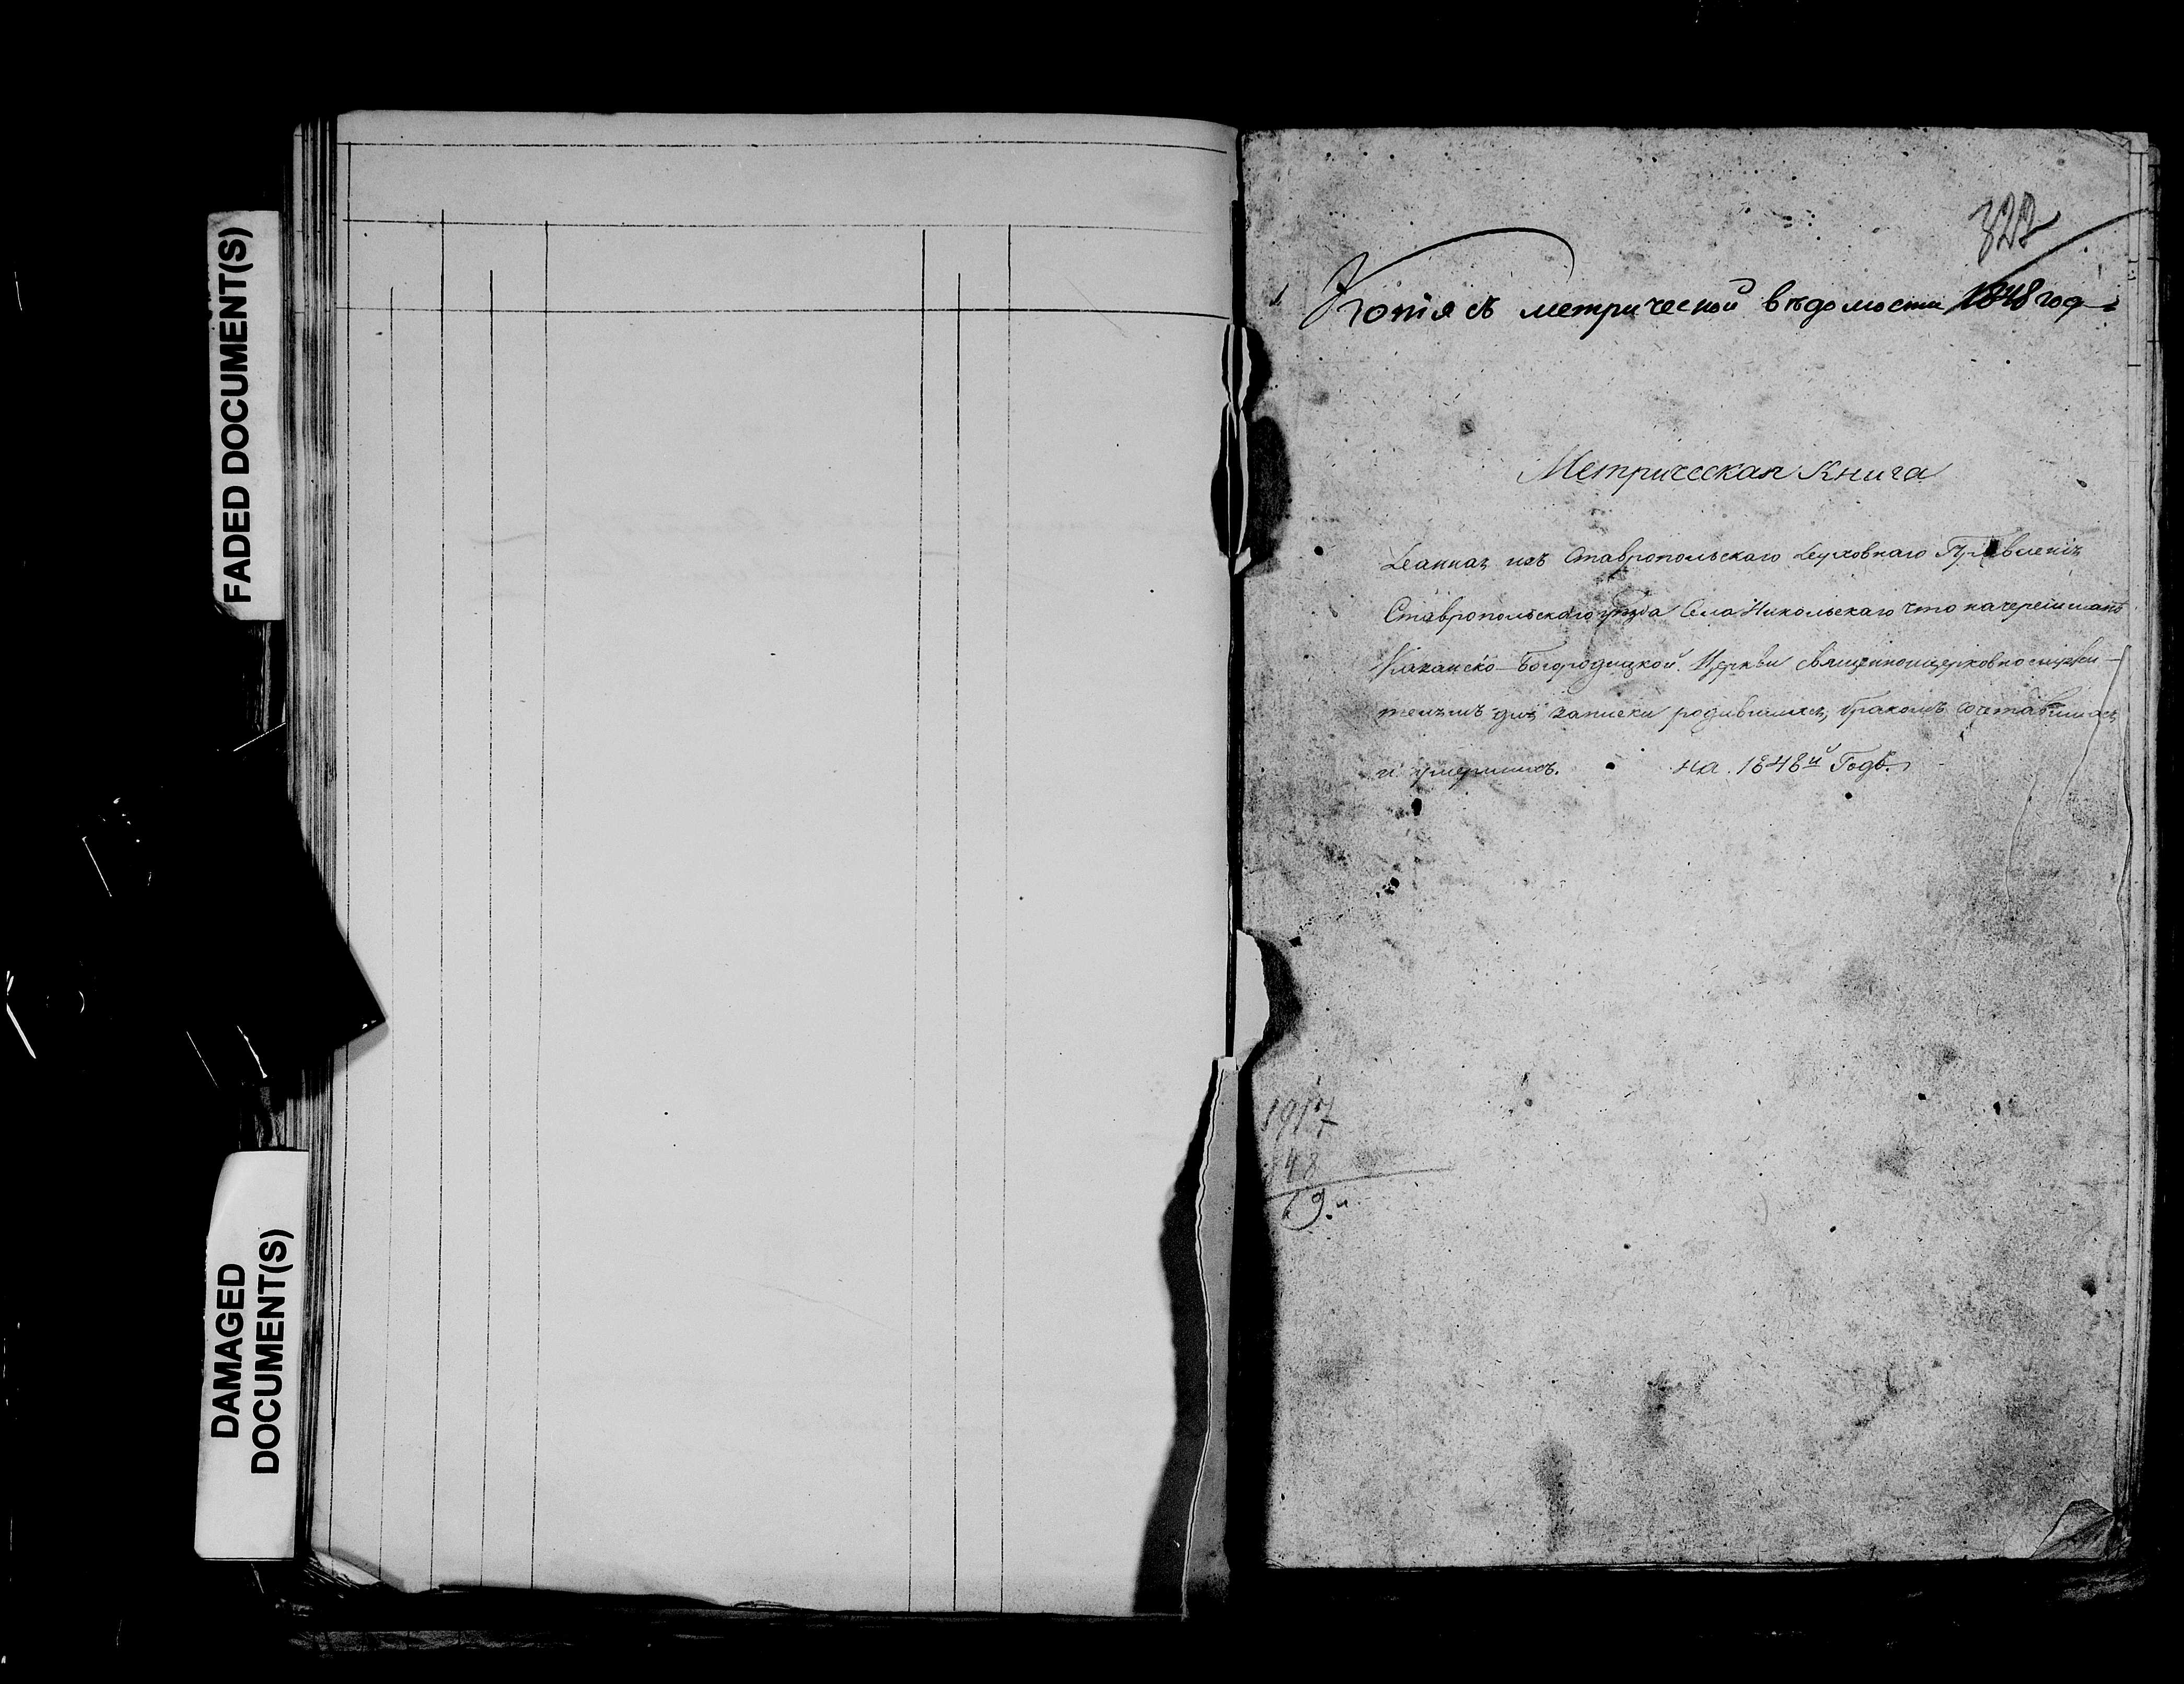 FADED DOCUMENT(S)
DAMAGED
DOCUMENT(S)
322
Копія съ метрической вѣдомости 1848 год
Метрическая Книга
Данная изъ Ставропольскаго Духовнаго Правленія
Ставропольскаго уѣзда Села Никольскаго что на черемшанѣ
Казанско-Богородицкой Церкви священноцерковнослужи-
телямъ для записки родившихся, бракомъ сочетавшихся
и умершихъ. на 1848й Годъ.
1917
48
69